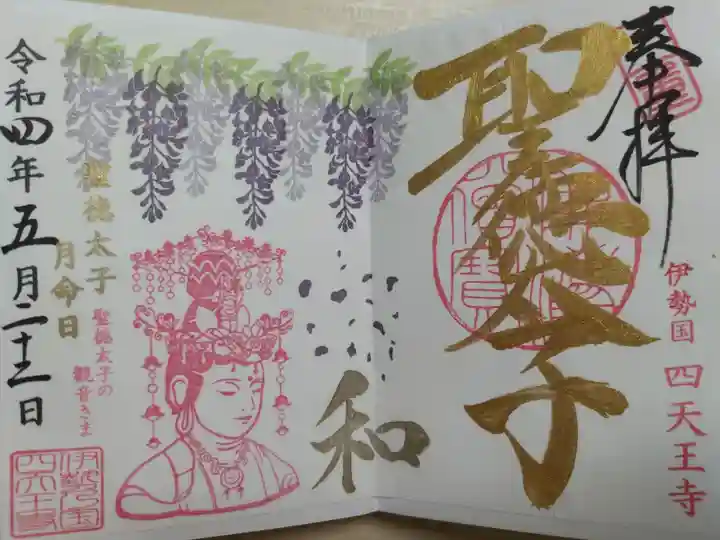 奉拝
聖徳太子
伊勢国 四天王寺
和
聖徳太子
月命日
聖徳太子の
観音さま
令和四年五月二十二日
伊勢の国
四天王寺